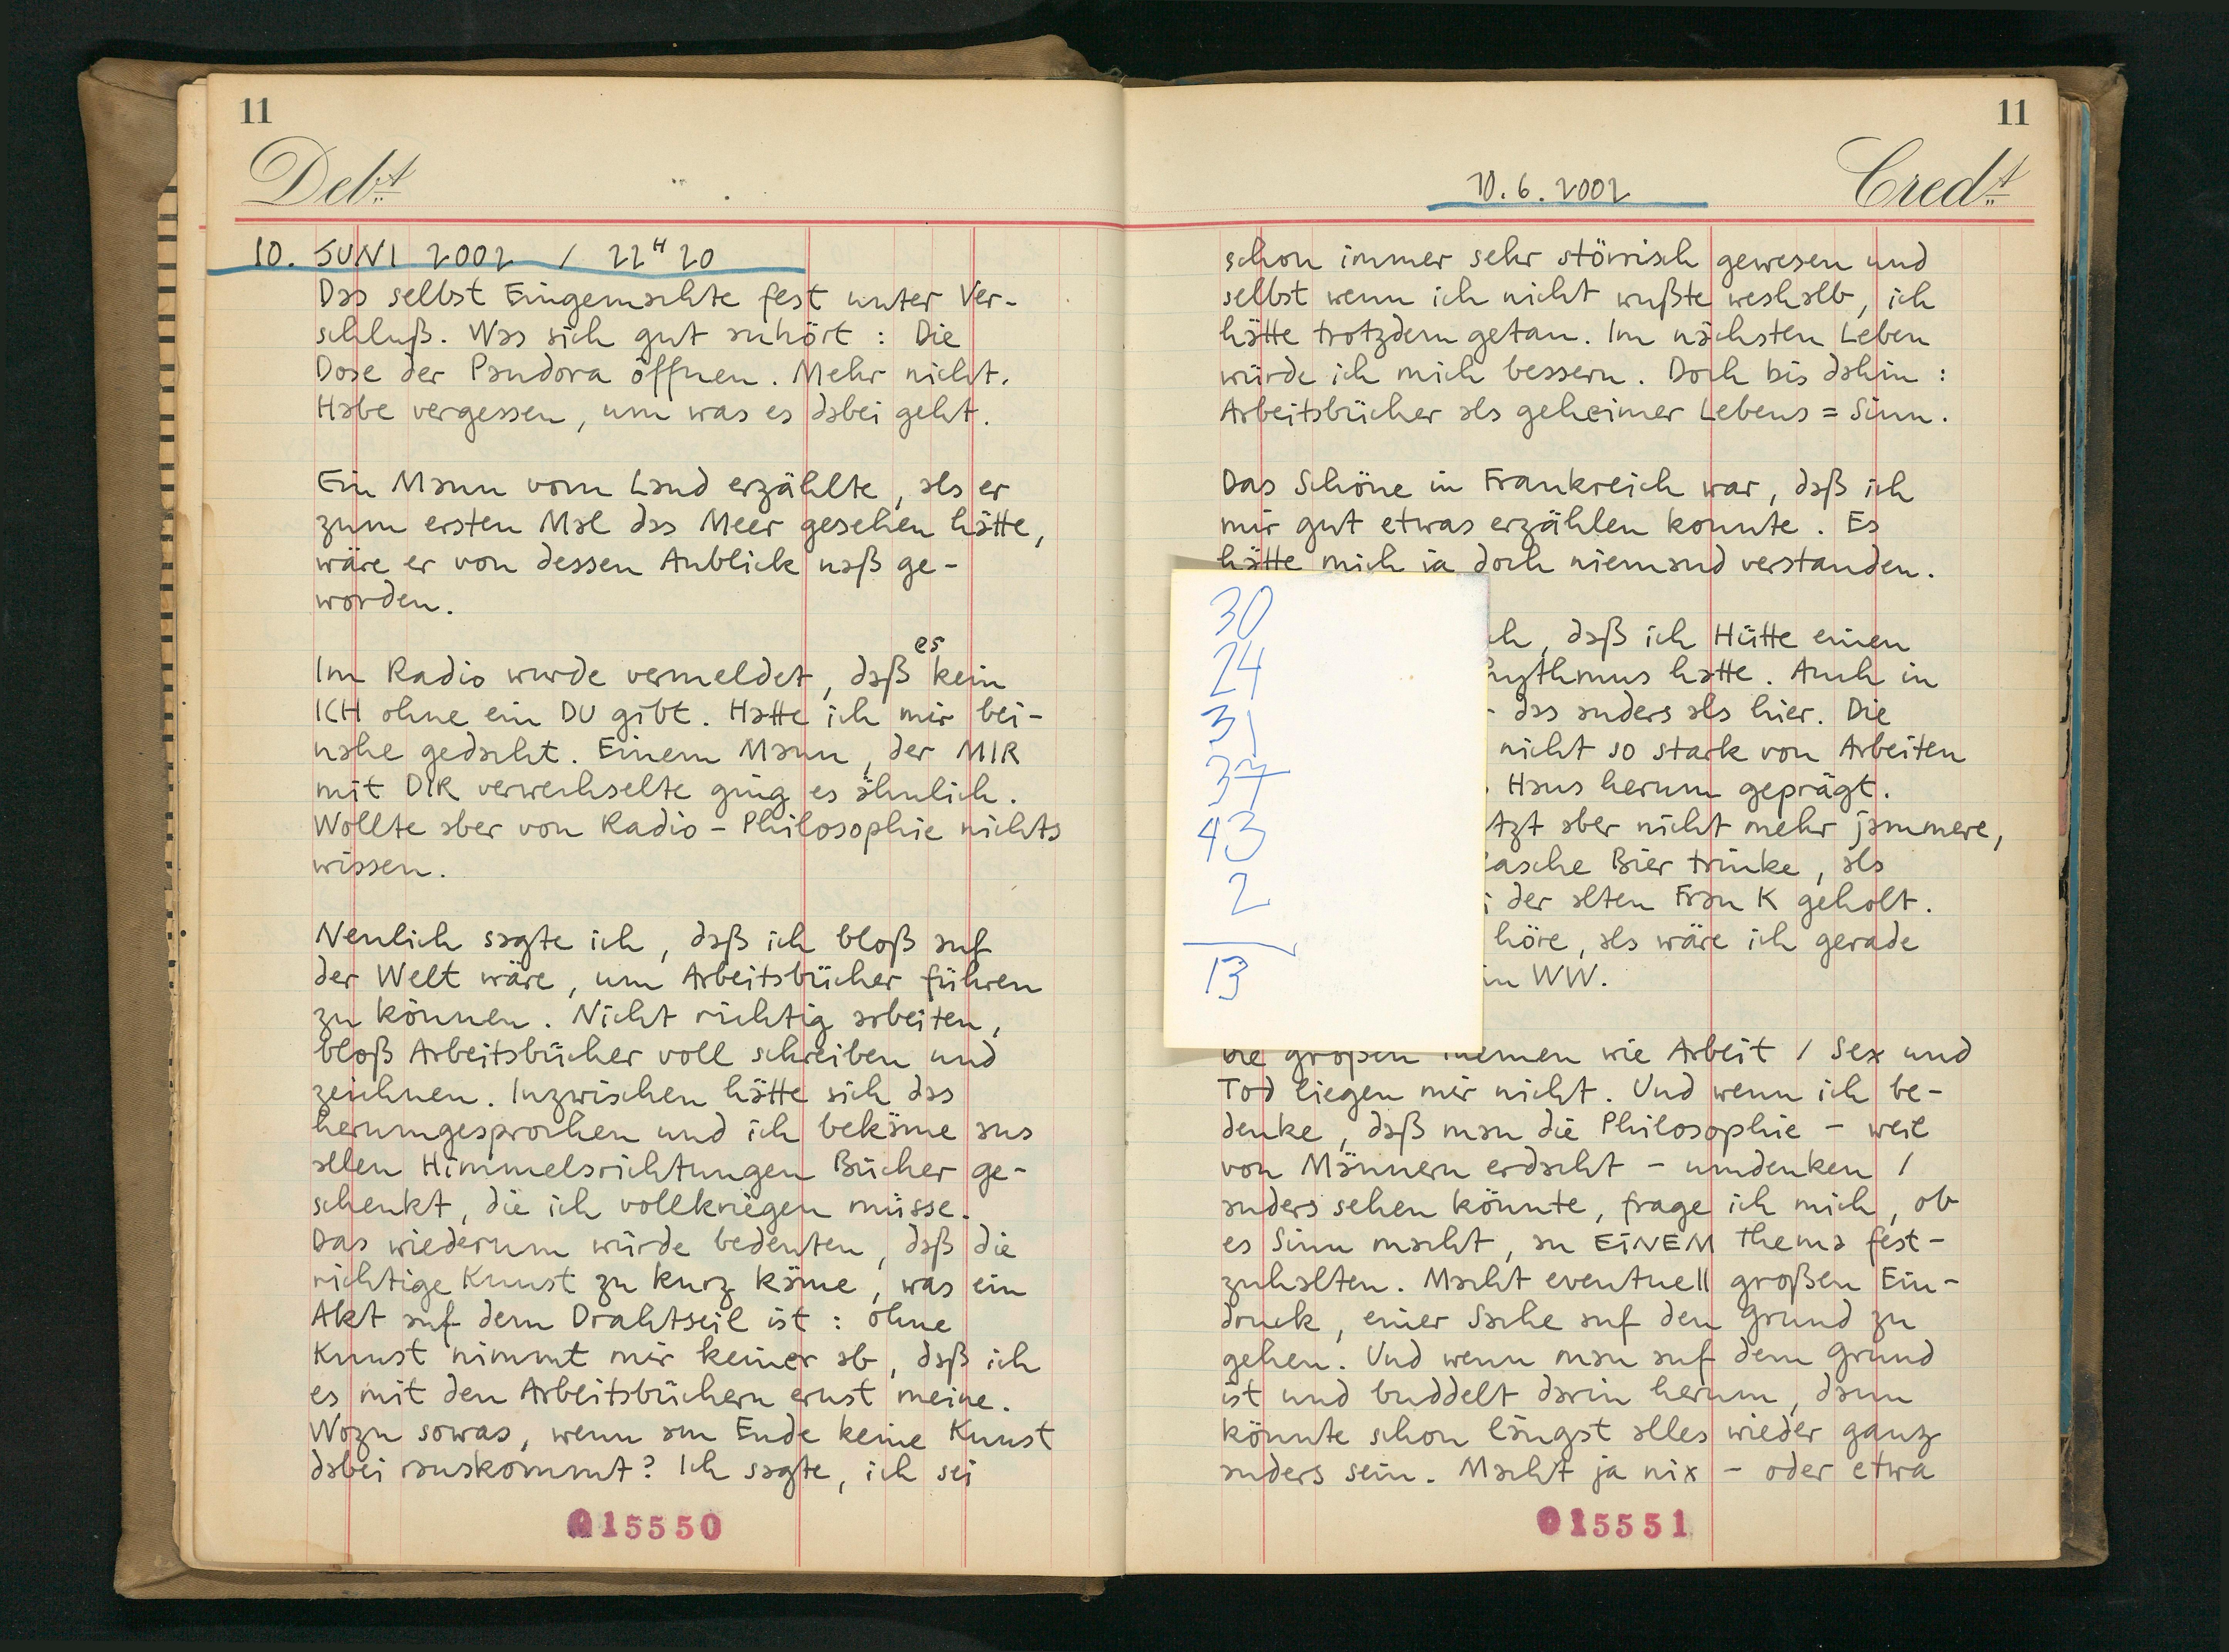 11
Debt
10. JUNI 2002 / 22H20
Das selbst Eingemachte fest unter Ver-
schluß. Was sich gut anhört : Die
Dose der Pandora öffnen. Mehr nicht.
Habe vergessen, um was es dabei geht.
Ein Mann vom Land erzählte, als er
zum ersten Mal das Meer gesehen hätte,
wäre er von dessen Anblick naß ge-
worden.
Im Radio wurde vermeldet, daß es kein
ICH ohne ein DU gibt. Hatte ich mir bei-
nahe gedacht. Einem Mann, der MIR
mit DIR verwechselte ging es ähnlich.
Wollte aber von Radio-Philosophie nichts
wissen.
Neulich sagte ich, daß ich bloß auf
der Welt wäre, um Arbeitsbücher führen
zu können. Nicht richtig arbeiten,
bloß Arbeitsbücher voll schreiben und
zeichnen. Inzwischen hätte sich das
herumgesprochen und ich bekäme aus
allen Himmelsrichtungen Bücher ge-
schenkt, die ich vollkriegen müsse.
Das wiederum würde bedeuten, daß die
richtige Kunst zu kurz käme, was ein
Akt auf dem Drahtseil ist : ohne
Kunst nimmt mir keiner ab, daß ich
es mit den Arbeitsbüchern ernst meine.
Wozu sowas, wenn am Ende keine Kunst
dabei rauskommt? Ich sagte, ich sei
015550
11
10.6.2002
Credt
schon immer sehr störrisch gewesen und
selbst wenn ich nicht wußte weshalb, ich
hätte trotzdem getan. Im nächsten Leben
würde ich mich bessern. Doch bis dahin :
Arbeitsbücher als geheimer Lebens=Sinn.
Das Schöne in Frankreich war, daß ich
mir gut etwas erzählen konnte. Es
hätte mich ja doch niemand verstanden.
ch, daß ich Hütte einen
hythmus hatte. Auch in
das anders als hier. Die
nicht so stark von Arbeiten
Haus herum geprägt.
tzt aber nicht mehr jammere,
lasche Bier trinke, als
i der alten Frau K geholt.
höre, als wäre ich gerade
in WW.
30
24
31
37
43
2
13
Die großen Themen wie Arbeit / Sex und
Tod liegen mir nicht. Und wenn ich be-
denke, daß man die Philosophie – weil
von Männern erdacht – umdenken /
anders sehen könnte, frage ich mich, ob
es Sinn macht, an EINEM Thema fest-
zuhalten. Macht eventuell großen Ein-
druck, einer Sache auf den Grund zu
gehen. Und wenn man auf dem Grund
ist und buddelt darin herum, dann
könnte schon längst alles wieder ganz
anders sein. Macht ja nix – oder etwa
015551